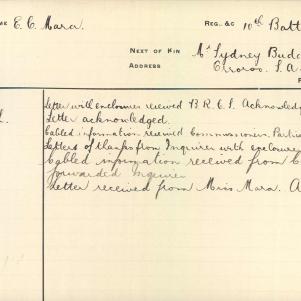 ME E. C. Mara. REG. &C 10th Batt
NEXT OF KIN Mr Sydney Budd
ADDRESS Orroroo. S. A
Letter with enclosure received B.R.C.S. Acknowledg
Letter acknowledged.
Cabled information received Commissioners. Partic
Letters of thanks from Inquirer with enclosure
Cabled information received from C
forwarded Inquirer
Letter received from Miss Mara. A